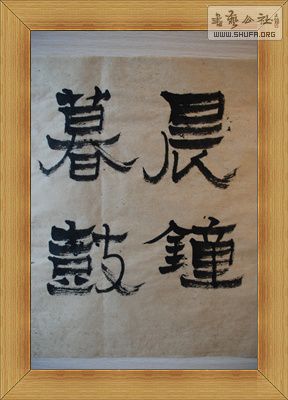 晨鐘
暮鼓
書藝公社
WWW.SHUFA.ORG